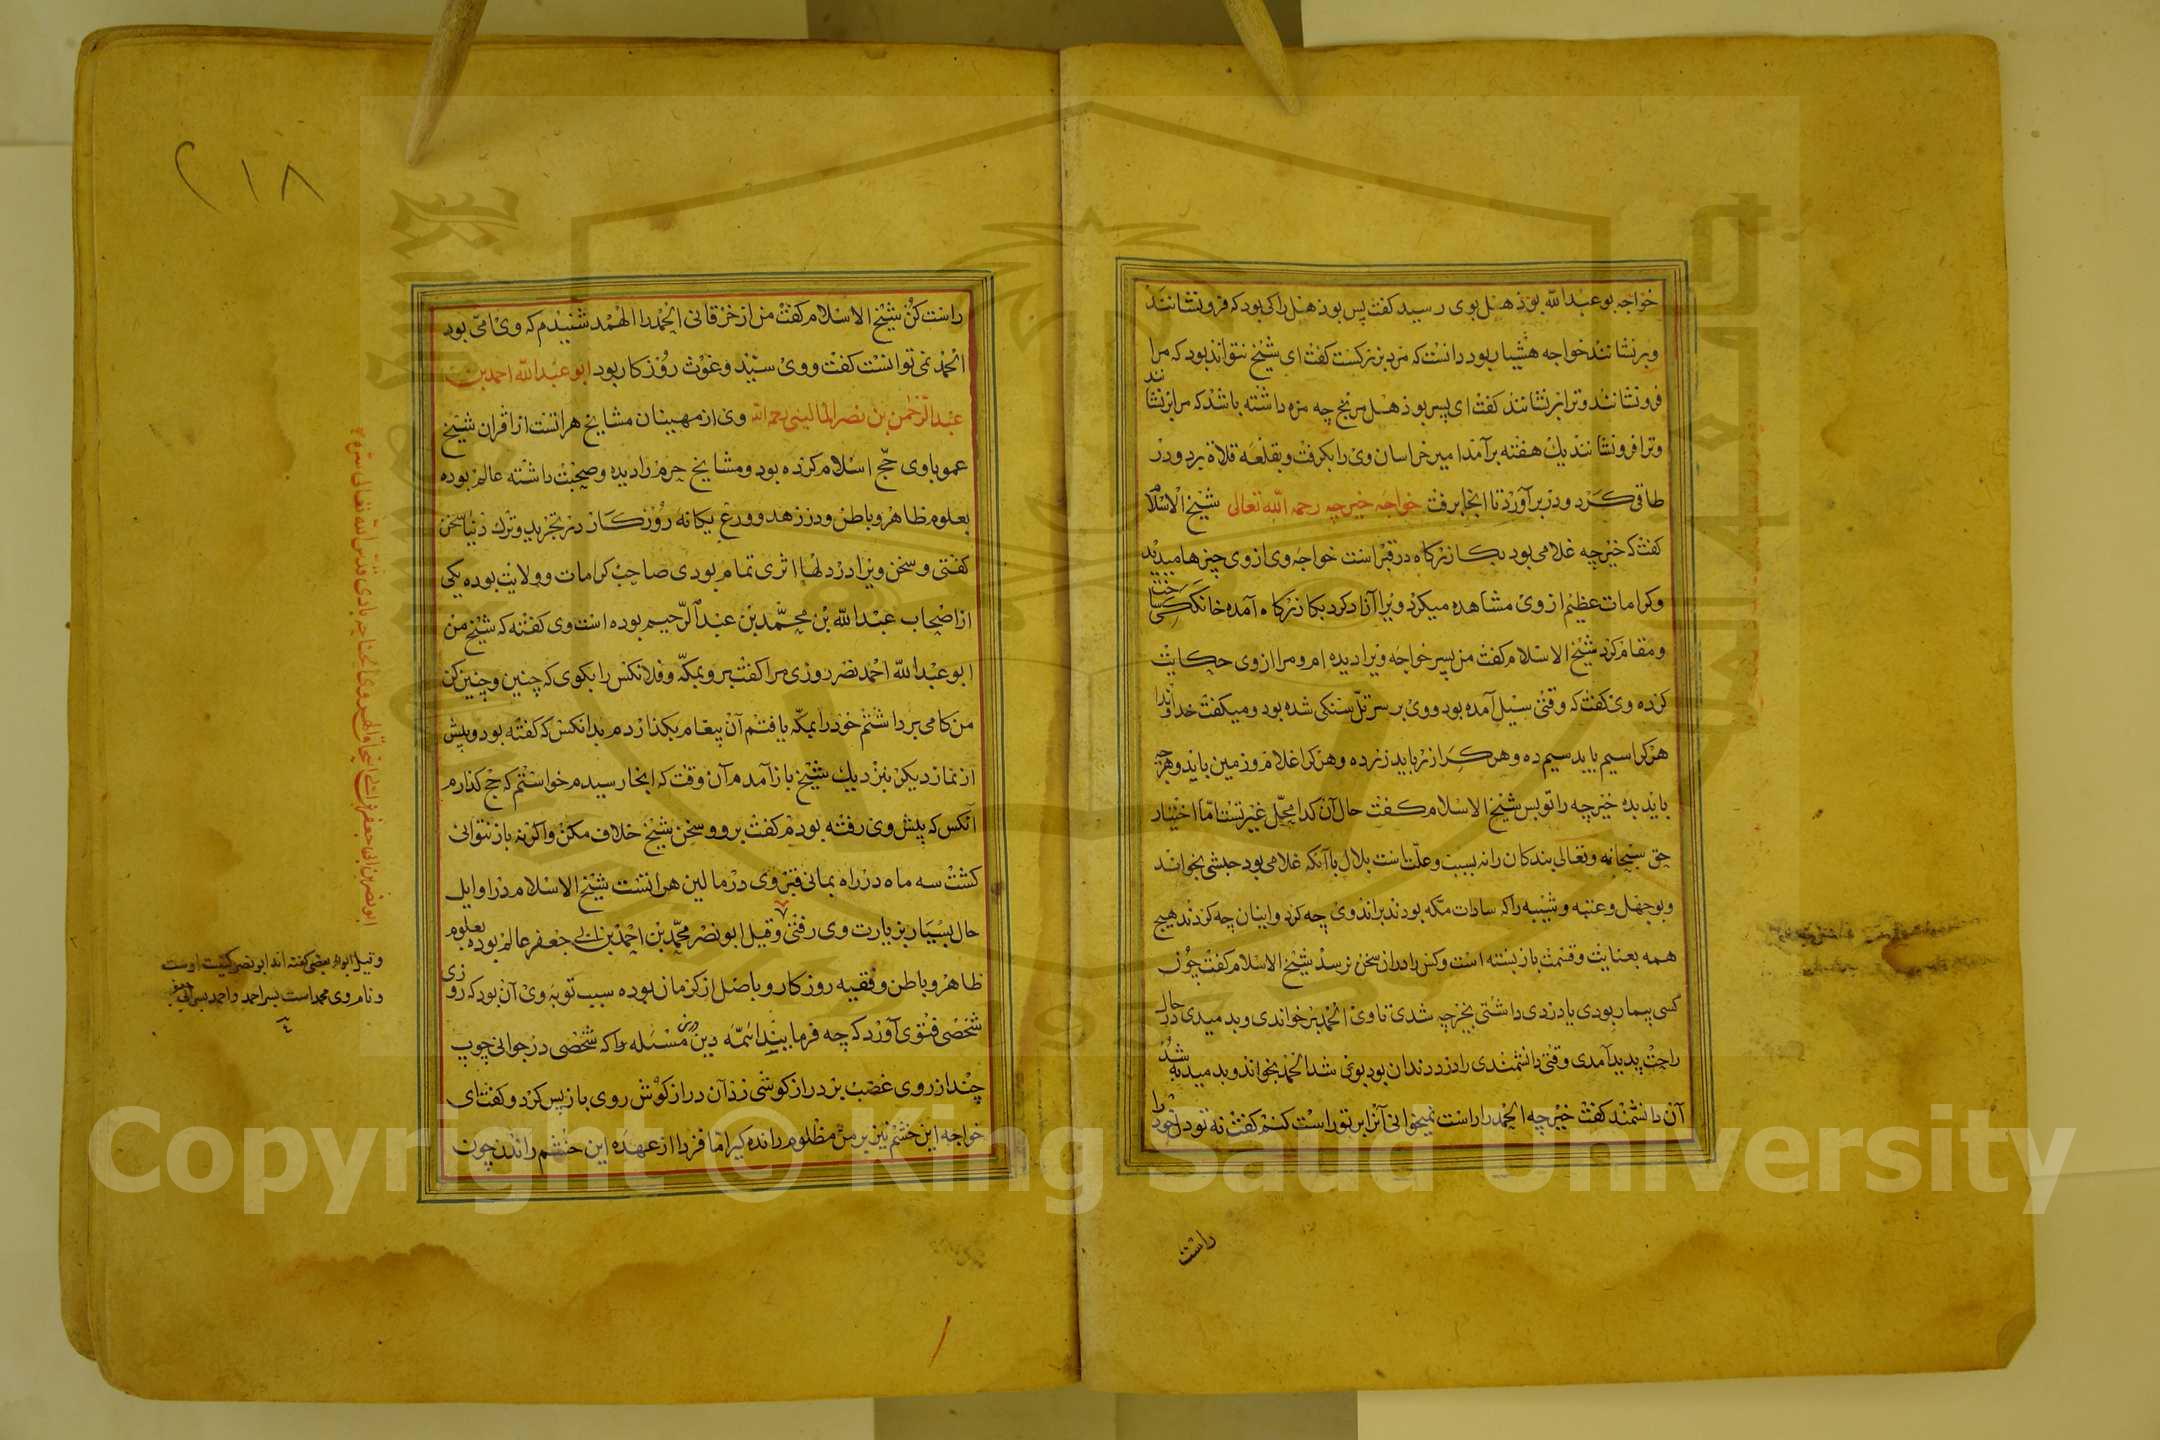 خواجه بو عبدالله بوذهل بوی رسید کفت پس بوذهل را کی بود که فرو نشانند
و برنشانند خواجه هشیار بود دانست که مرد بزرکست کفت ای شیخ نتواند بود که مرا
فرونشانند و ترا برنشانند کفت ای پسر بوذهل مرنج چه مزه داشته باشد که مرا برنشانند
و ترا فرونشانند یک هفته برآمد امیر خراسان وی را بکرفت و بقلعه قلاة برد و در
طاقی کرد و در برآورد تا انجا برفت خواجه خیرچه رحمه الله تعالی شیخ الاسلام
کفت که خیرچه غلامی بود بکازرکاه در قبر است خواجه وی از وی چیزها میدید
و کرامات عظیم از وی مشاهده میکرد ویرا آزاد کرد بکازرکاه آمده خانککی ساخت
و مقام کرد شیخ الاسلام کفت من پسر خواجه ویرا دیده ام و مرا از وی حکایت
کرده وی کفت که وقتی سیل آمده بود و وی بر سر تل سنکی شده بود و میکفت خداوندا
هر کرا سیم باید سیم ده و هر کرا زر باید زر ده و هر کرا غلام و زمین باید و هر چه
باید بده خیرچه را تو بس شیخ الاسلام کفت حال آن کدا محل غیر تست اما اختیار
حق سبحانه و تعالی بندکان را نه بسبب و علت است بلال با آنکه غلامی بود حبشی بخواند
و بوجهل و عتبه و شیبه را که سادات مکه بودند براند وی چه کرد و اینان چه کردند هیچ
همه بعنایت و قسمت باز بسته است و کس را در از سخن نرسد شیخ الاسلام کفت چون
کسی بیمار بودی یا دردی داشتی بخیرچه شدی تا وی الحمد بر خواندی و بدمیدی در حال
راحت پدید آمدی وقتی دانشمندی را درد دندان بود بوی شد الحمد بخواند و بدمید به شد
آن دانشمند کفت خیرچه الحمد را راست نمیخوانی آنرا بر تو راست کنم کفت نه تو دل خود را
راست
۲۱۸
راست کن شیخ الاسلام کفت من از خرقانی الحمد را الهمد شنیدم که وی امی بود
الحمد نمی توانست کفت و وی سید و غوث روزکار بود ابو عبدالله احمد بن
عبدالرحمن بن نصر المالینی رحمه الله وی از مهینان مشایخ هراتست از اقران شیخ
عمو با وی حج اسلام کرده بود و مشایخ حرم را دیده و صحبت داشته عالم بوده
بعلوم ظاهر و باطن و در زهد و ورع یکانه روزکار در تجرید و ترک دنیا سخن
کفتی و سخن ویرا در دلها اثری تمام بودی صاحب کرامات و ولایت بوده یکی
از اصحاب عبدالله بن محمد بن عبدالرحیم بوده است وی کفته که شیخ من
ابو عبدالله احمد نصر روزی مرا کفت برو بمکه و فلانکس را بکوی که چنین و چنین کن
من کامی برداشتم خود را بمکه یافتم آن پیغام بکذاردم بدانکس که کفته بود و پیش
از نماز دیکر بنزدیک شیخ باز آمدم آن وقت که انجا رسیدم خواستم که حج کذارم
آنکس که پیش وی رفته بودم کفت برو و سخن شیخ خلاف مکن و اکر نه باز نتوانی
کشت سه ماه در راه بمانی قبر وی در مالین هراتست شیخ الاسلام در اوایل
حال بسیار بزیارت وی رفتی و قیل ابو نصر محمد بن احمد بن ابی جعفر عالم بوده بعلوم
ظاهر و باطن و فقیه روزکار و باصل از کرمان بوده سبب توبه وی آن بود که روزی
شخصی فتوی آورد که چه فرمایند ائمه دین درین مسئله که شخصی در جوانی چوب
چند از روی غضب بر درازکوشی زد آن درازکوش روی باز پس کرد و کفت ای
خواجه این خشم نیز بر من مظلوم رانده کیر اما فردا از عهده این خشم راندن چون
و نام وی محمد است پسر احمد و احمد پسر ابی جعفر